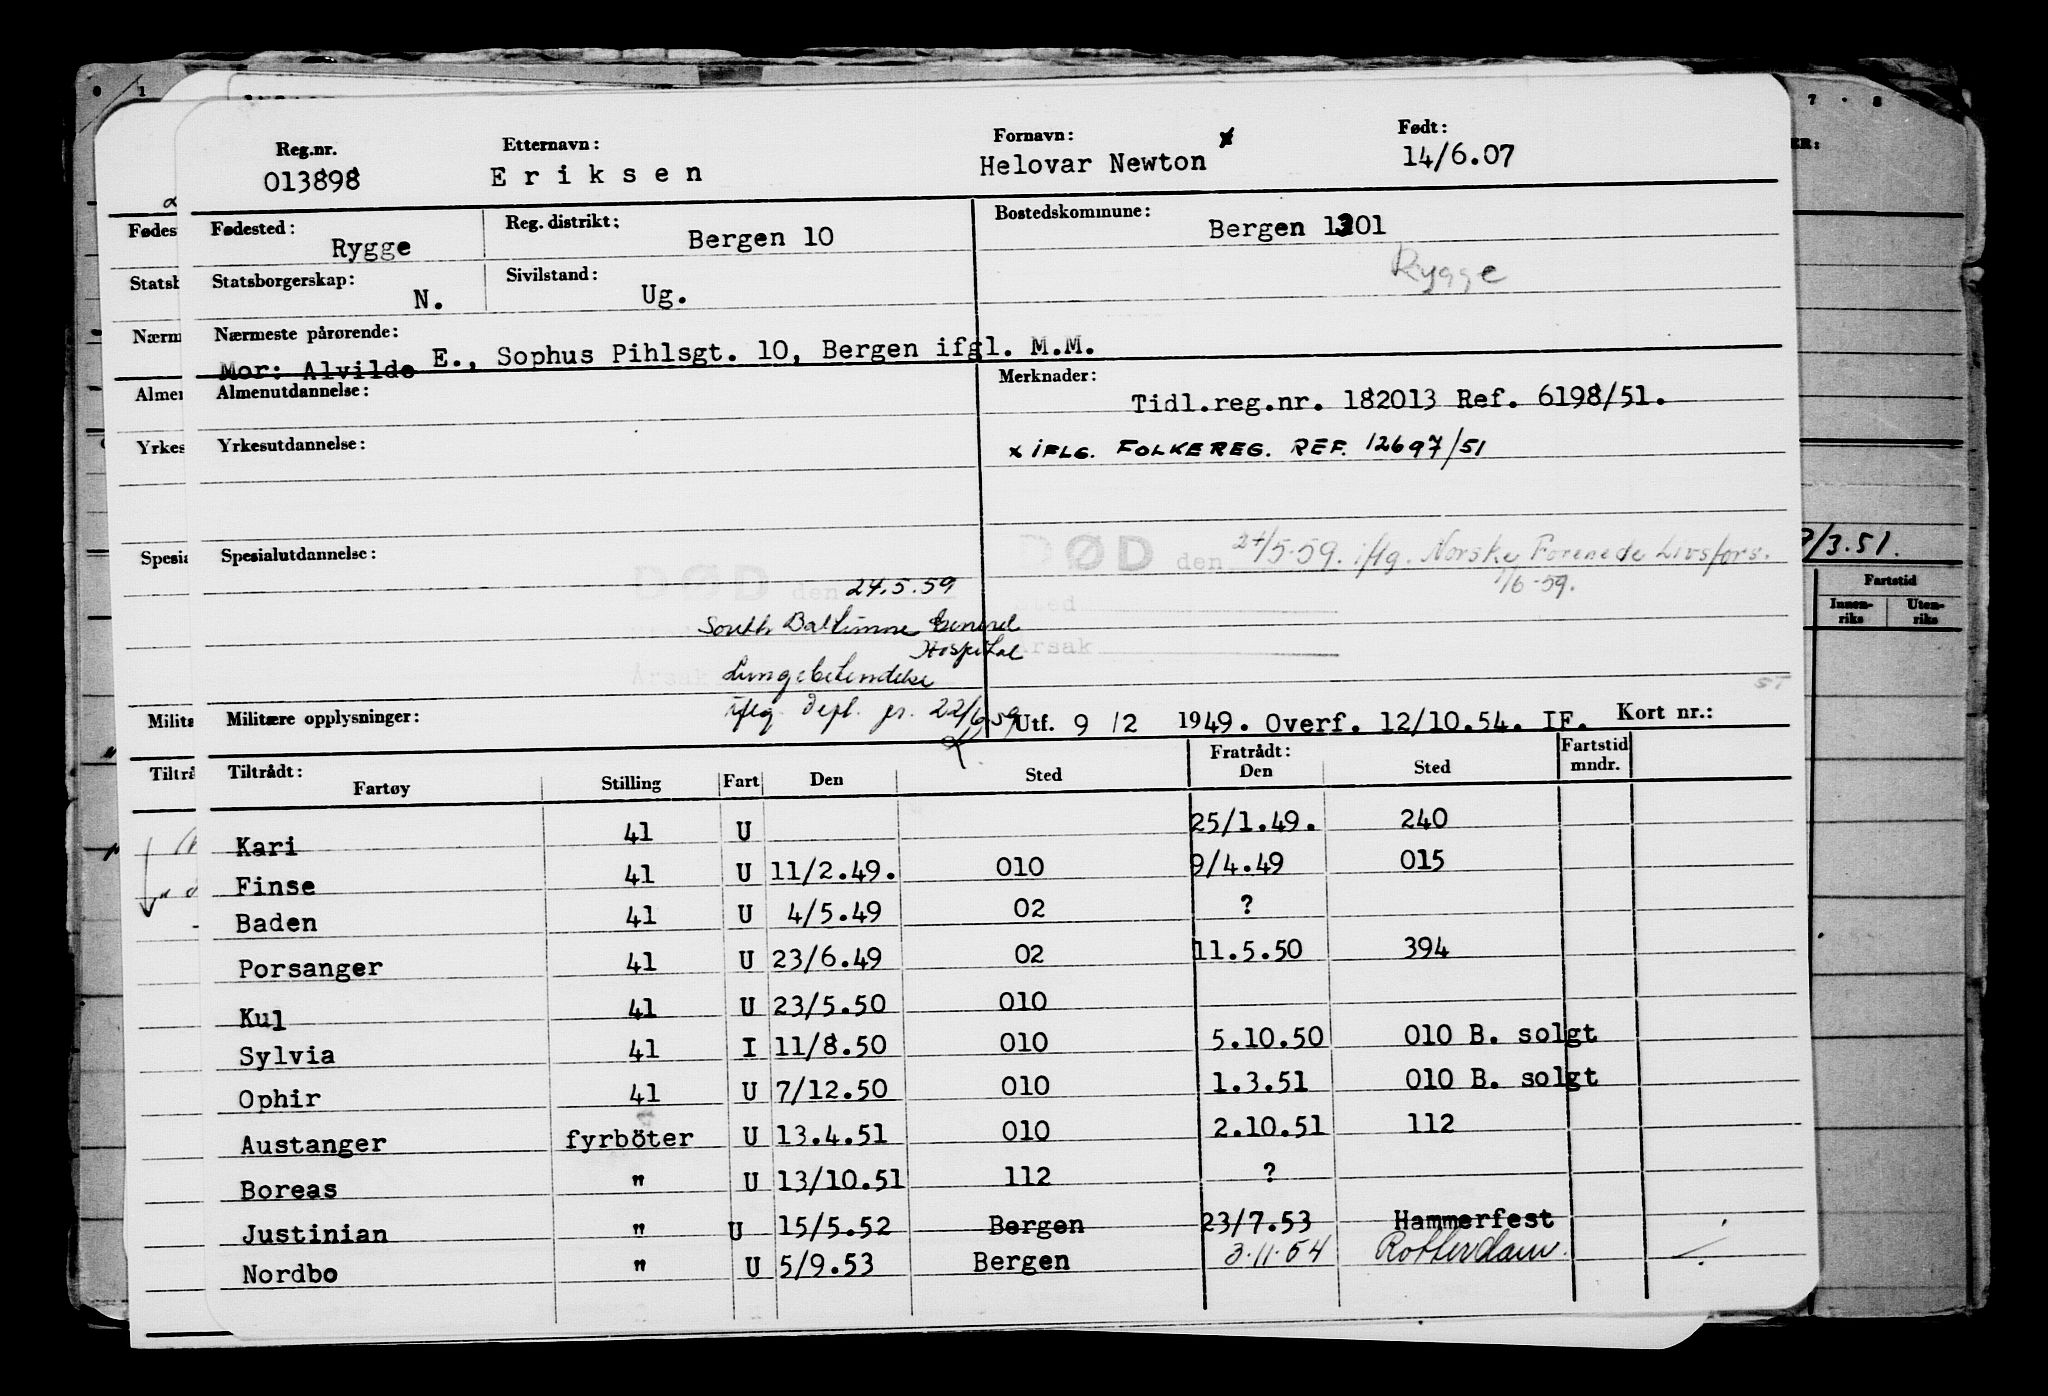 Reg.nr. Etternavn: Fornavn: Født:
013898 Eriksen Helovar Newton x 14/6.07
Fødested: Rygge Reg. distrikt: Bergen 10 Bostedskommune: Bergen 1301
Rygge
Statsborgerskap: N. Sivilstand: Ug.
Nærmeste pårørende:
Mor: Alvilde E., Sophus Pihlsgt. 10, Bergen ifgl. M.M.
Almenutdannelse: Merknader:
Tidl.reg.nr. 182013 Ref. 6198/51.
Yrkesutdannelse: x IFLG. FOLKEREG. REF. 12697/51
Spesialutdannelse: DØD den 24/5-59. iflg. Norske Forenede Livsfors.
1/6-59.
DØD den 24.5.59
Sted
South Baltimore General
Hospital
Årsak
Årsak Lungebetendelse
iflg. Depl. pr. 22/6.59
Militære opplysninger: Utf. 9/2 1949. Overf. 12/10.54. IF. Kort nr.:
Tiltrådt: Fratrådt: Fartstid
Fartøy Stilling Fart Den Sted Den Sted mndr.
Kari 41 U 25/1.49. 240
Finse 41 U 11/2.49. 010 9/4.49 015
Baden 41 U 4/5.49 02 ?
Porsanger 41 U 23/6.49 02 11.5.50 394
Kul 41 U 23/5.50 010
Sylvia 41 I 11/8.50 010 5.10.50 010 B. solgt
Ophir 41 U 7/12.50 010 1.3.51 010 B. solgt
Austanger fyrböter U 13.4.51 010 2.10.51 112
Boreas " U 13/10.51 112 ?
Justinian " U 15/5.52 Bergen 23/7.53 Hammerfest
Nordbo " U 5/9.53 Bergen 3.11.54 Rotterdam.
Fødes
Statsb
Nærm
Almen
Yrkes
Spesia
Militæ
Tiltrå
7 8
ER:
/3.51.
Fartstid
Innen-
riks
Uten-
riks